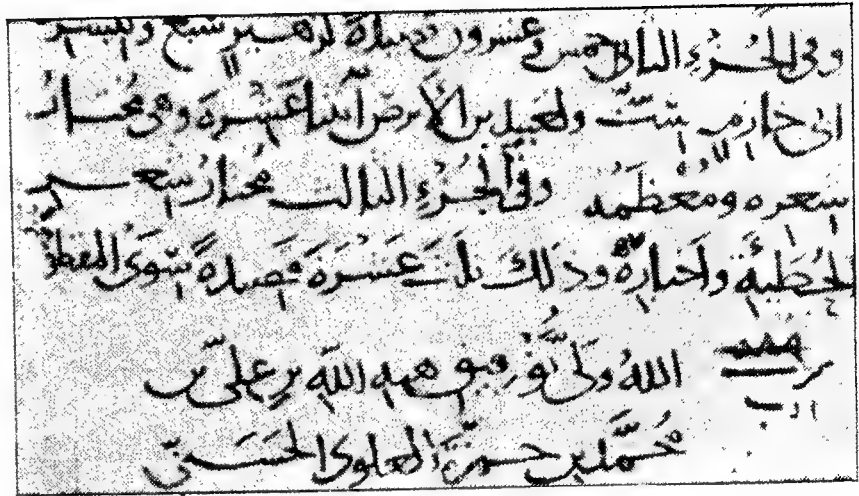 وفي الجزء الثاني خمس وعشرون قصيدة لزهير سبع ولبشر
ابن ابي خازم ست ولعبيد بن الأبرص اثنتا عشرة وهي مختار
شعره ومعظمه وفي الجزء الثالث مختار شعر
الحطيئة وأخباره وذلك ثلاث عشرة قصيدة سوى المقطو
الله ولي توفيق هبة الله بن علي بن
محمد بن حمزة العلوي الحسني